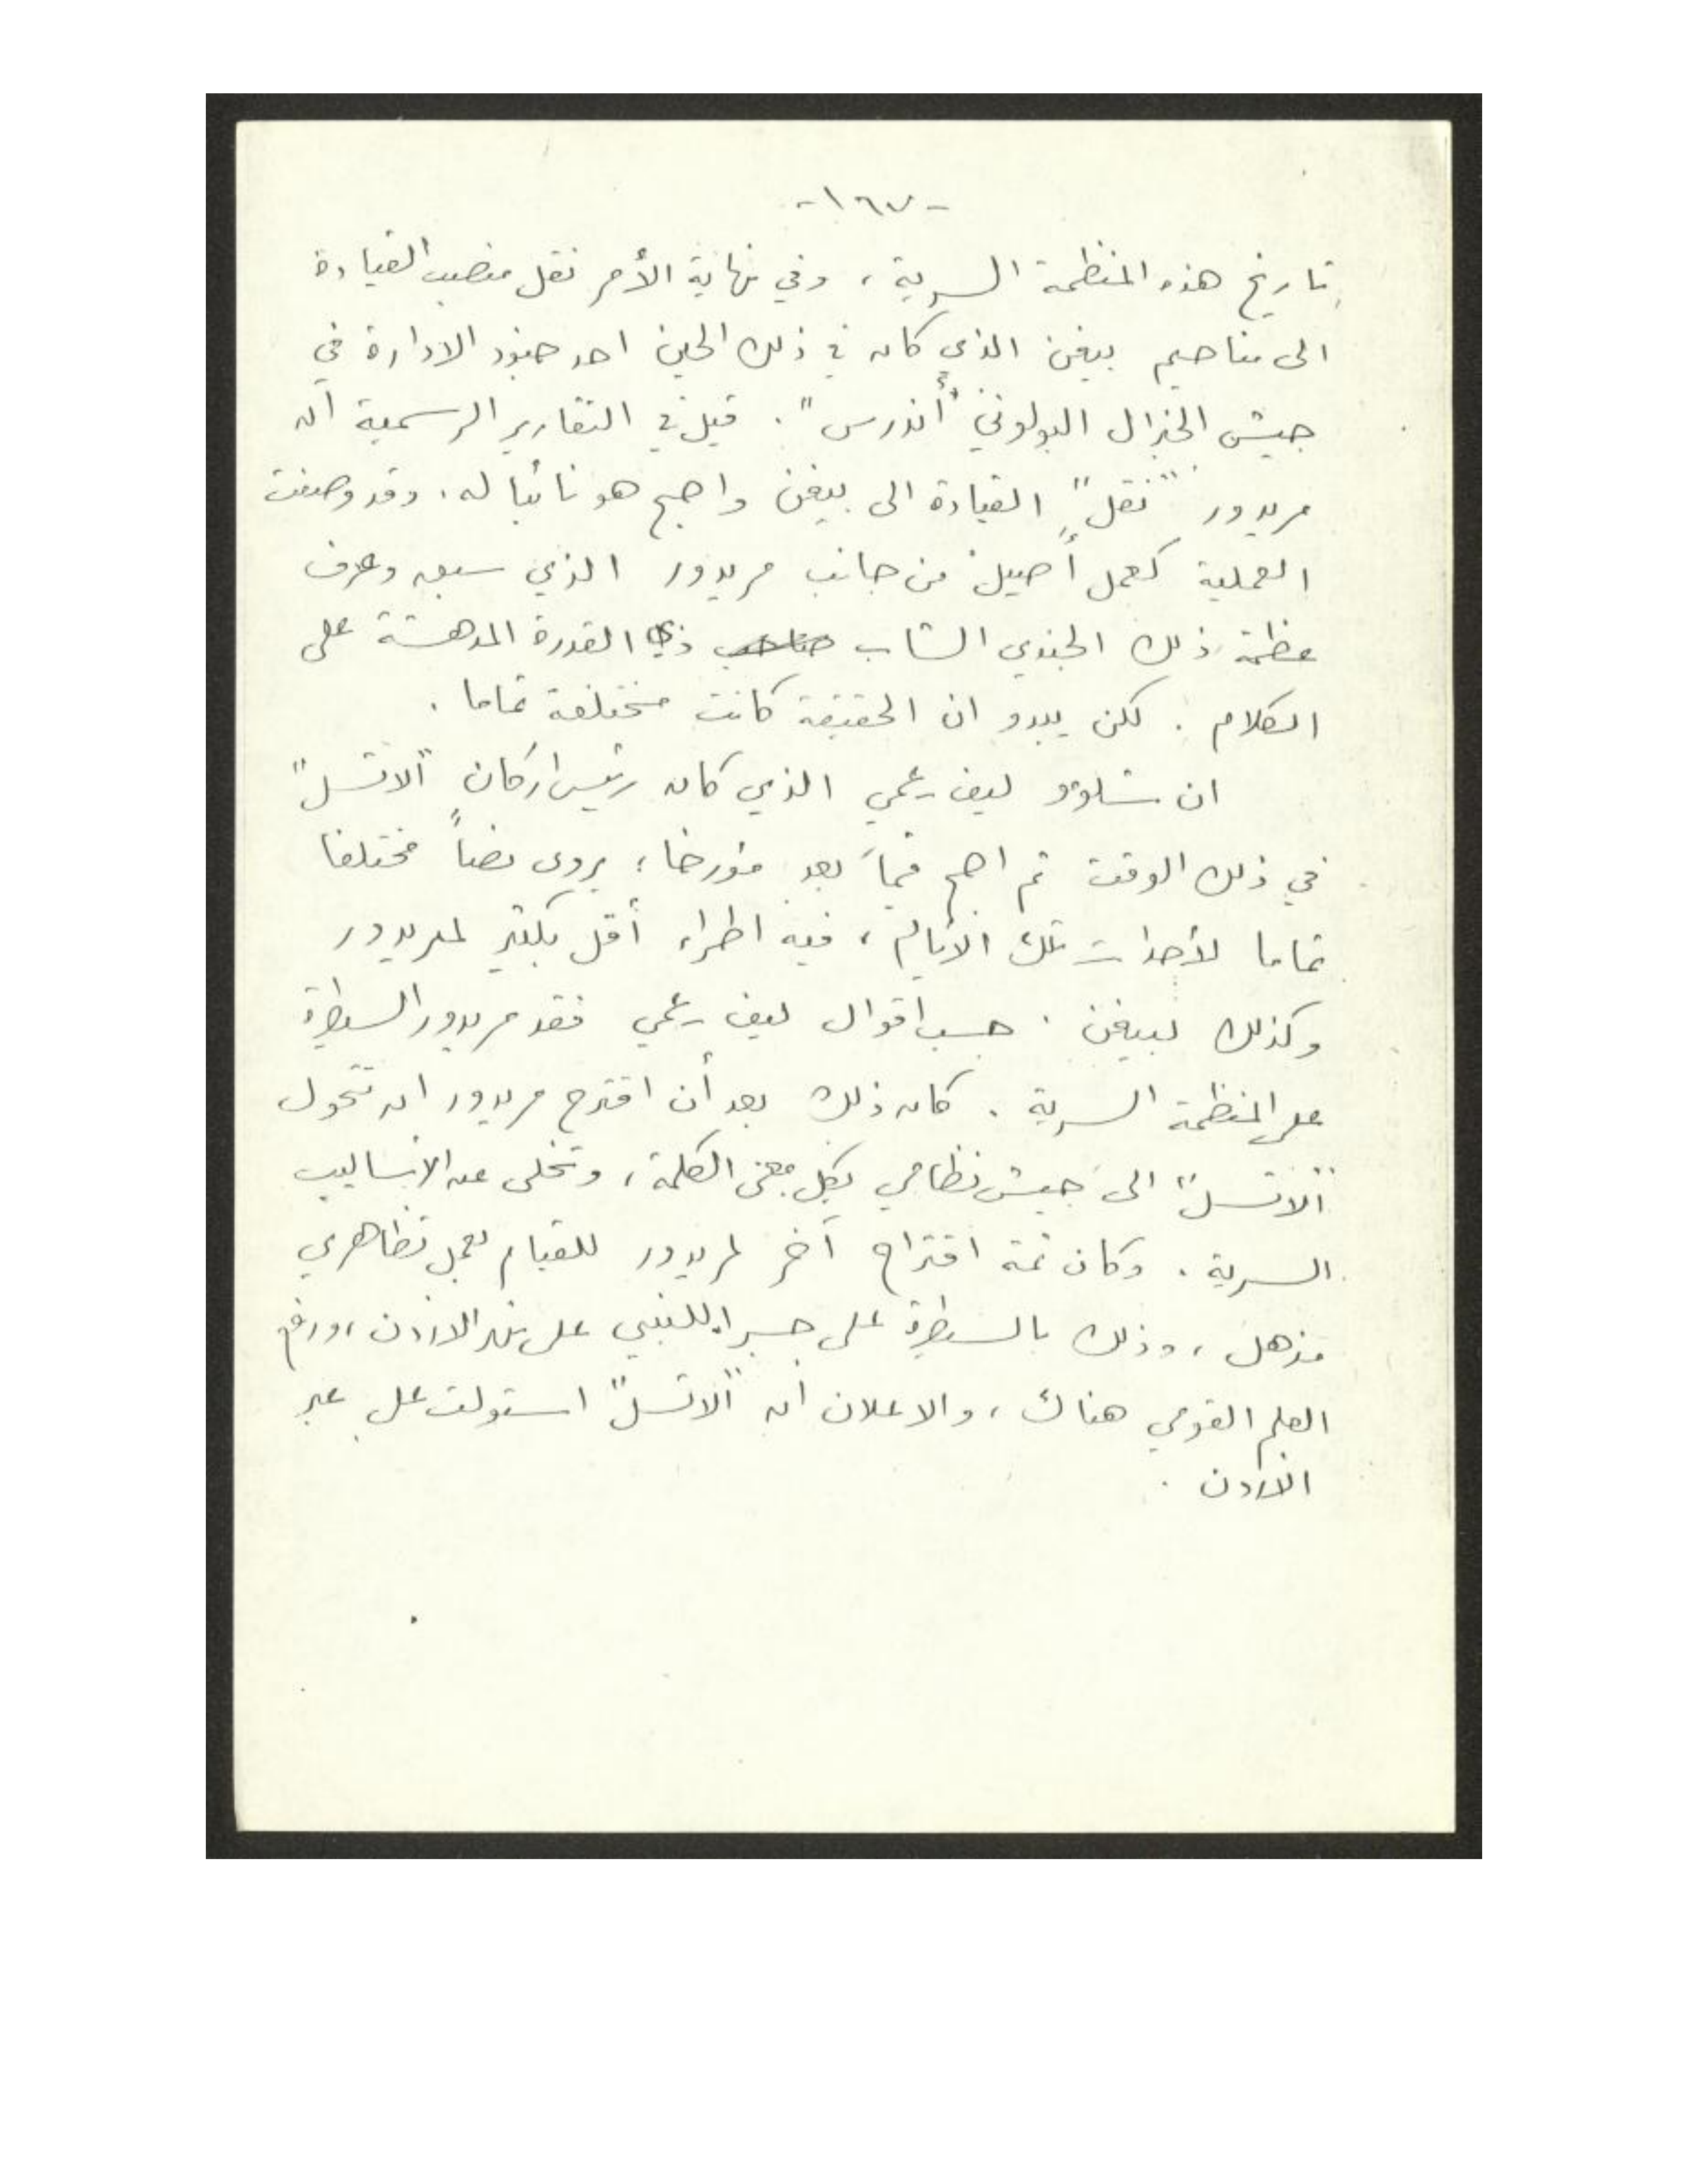 -١٦٧-
تاريخ هذه المنظمة السرية، وفي نهاية الأمر نقل منصب القيادة
الى مناحيم بيغن الذي كان في ذلك الحين احد جنود الادارة في
جيش الجنرال البولوني "أندرس". قيل في التقارير الرسمية ان
مريدور "نقل" القيادة الى بيغن واصبح هو نائبا له. وقد وصفت
العملية كعمل أصيل من جانب مريدور الذي سبق وعرف
عظمة ذلك الجندي الشاب ذي القدرة المدهشة على
الكلام. لكن يبدو ان الحقيقة كانت مختلفة تماما.
ان شلومو ليف-عمي الذي كان رئيس اركان "الاتسل"
في ذلك الوقت ثم اصبح فيما بعد مؤرخا، يروى نصاً مختلفا
تماما لأحداث تلك الأيام، فيه اطراء أقل بكثير لمريدور
وكذلك لبيغن. حسب اقوال ليف-عمي فقد مريدور السيطرة
على المنظمة السرية. كان ذلك بعد أن اقترح مريدور ان تتحول
"الاتسل" الى جيش نظامي بكل معنى الكلمة، وتخلى عن الاساليب
السرية. وكان ثمة اقتراح آخر لمريدور للقيام بعمل تظاهري
مذهل، وذلك بالسيطرة على جسر اللنبي على نهر الاردن، ورفع
العلم القومي هناك، والاعلان ان "الاتسل" استولت على عبر
الاردن.